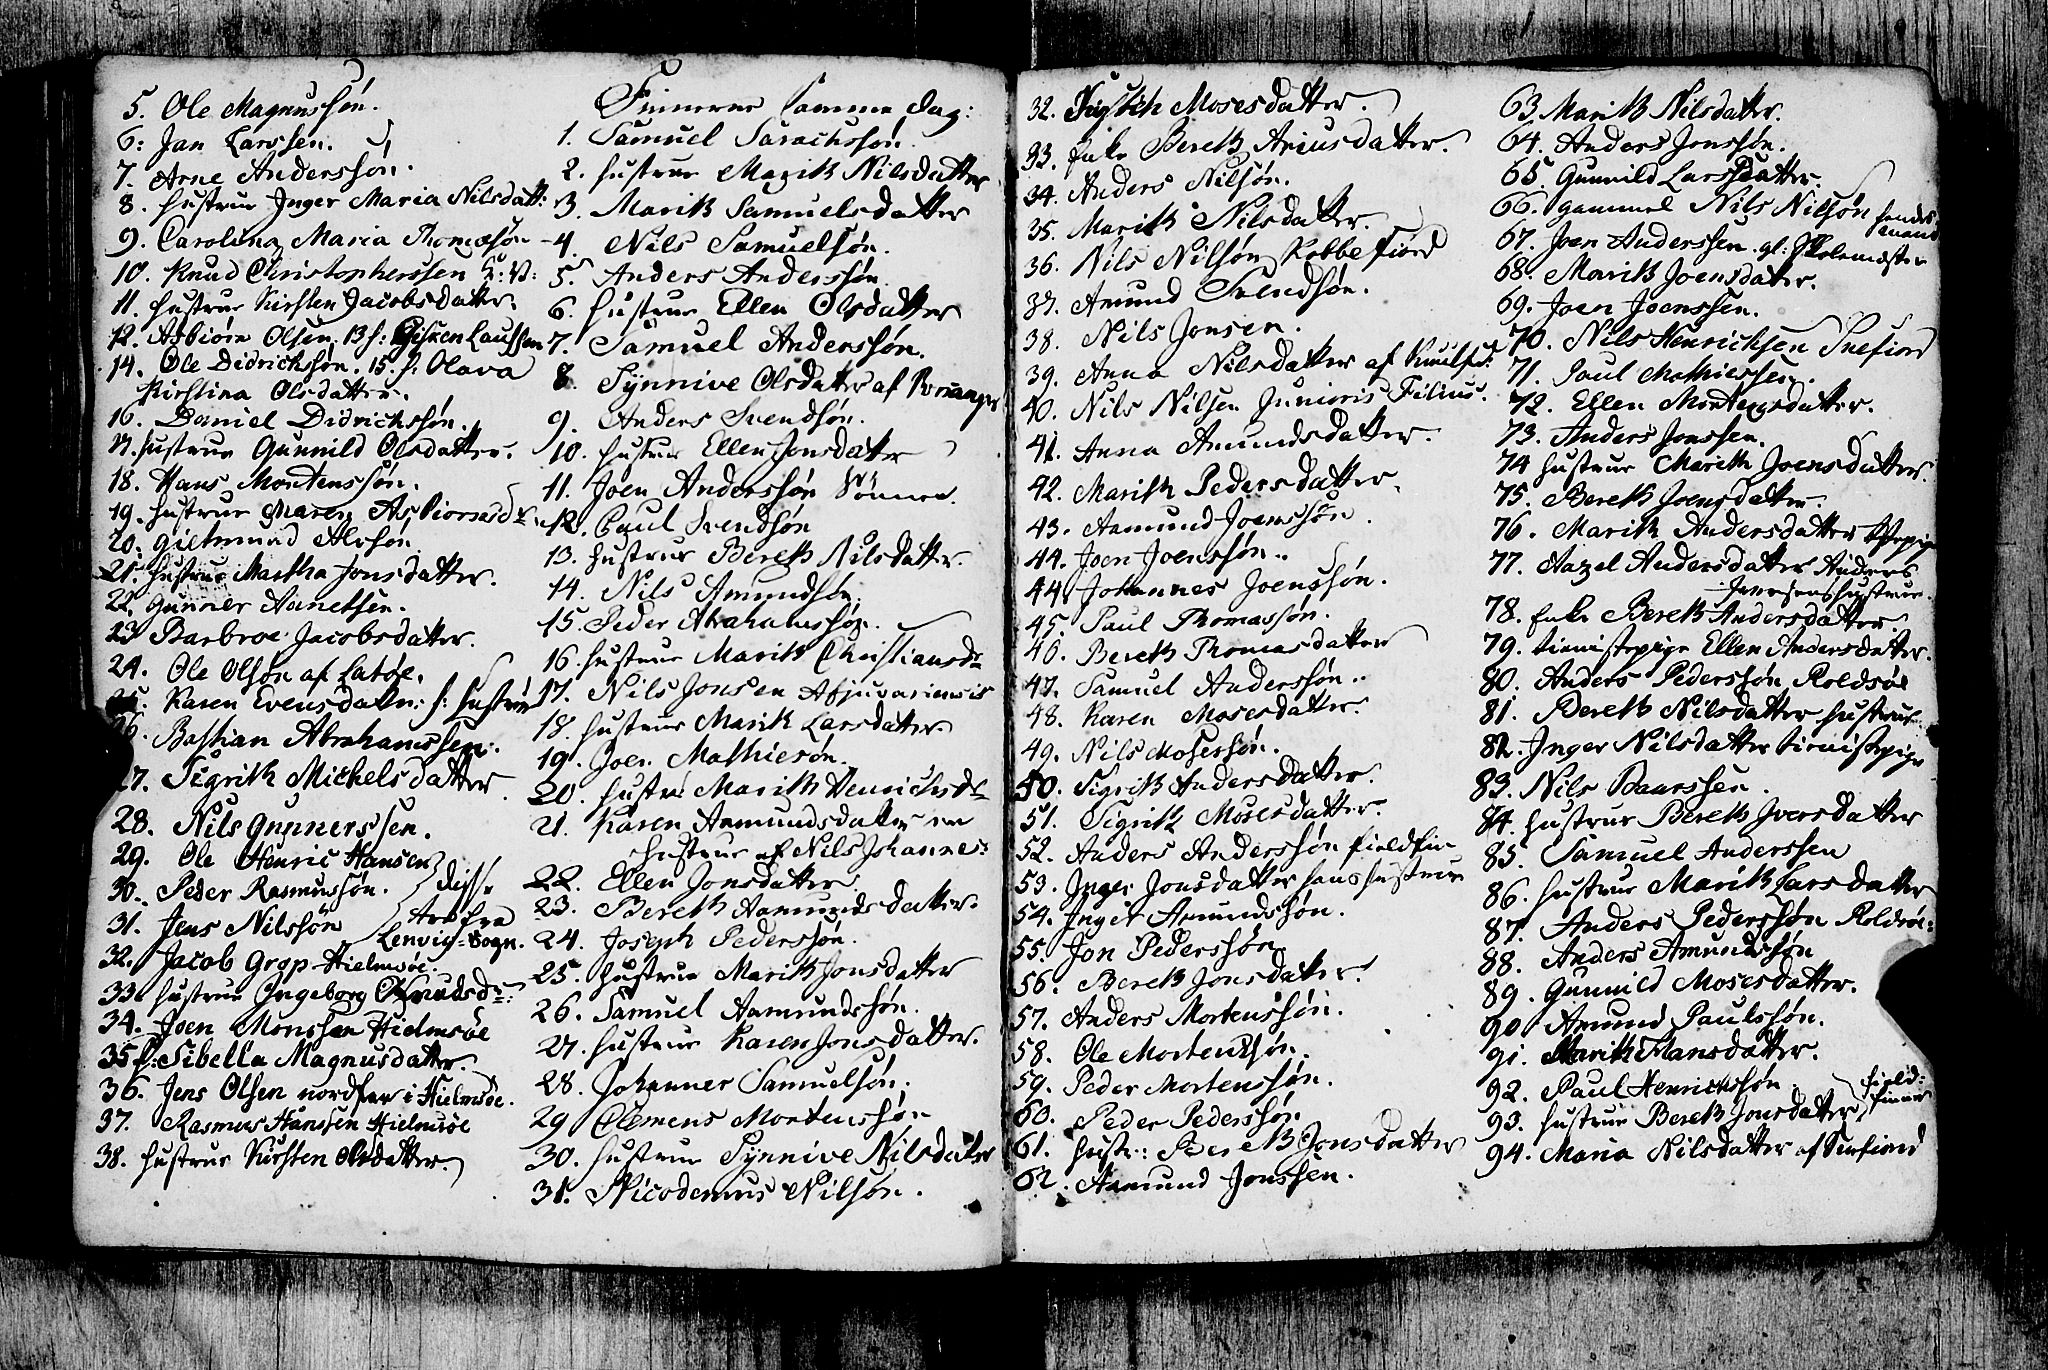 5. Ole Magnussøn.
6: Jan Larssen.
7. Arne Anderssøn.
8. hustrue Inger Maria Nilsdatt:
9. Carolina Maria Thomæsøn
10. Knud Christopherssen
11. hustrue Kirsten Jacobsdatter.
12. Asbiørn Olsen. 13 h:
14. Ole Didrichsøn. 15. h: Olava
Kirstina Olsdatter.
16. Daniel Didrichssøn.
17. hustrue Gunnild Olsdatter.
18. Hans Mortenssøn.
19. hustrue Maren Asbiørnsd
20.
21. hustrue Martha Jonsdatter.
22. Gunner
23 Barbroe Jacobsdatter.
24. Ole Olsøn af Latøe.
25. Karen Evensdatter h: hustrue
26. Bastian Abrahamssen.
27. Sigrith Michelsdatter
28. Nils Gunnerssen.
29. Ole Henric Hansen
30. Peder Rasmussøn. disse
31. Jens Nilssøn fra
Lenvig-Sogn.
32. Jacob Grop Hielmsøe.
33. hustrue Ingeborg Knudsd:
34. Joen Monssen Hielmsøe
35 h: Sibella Magnusdatter.
36. Jens Olsen nordfar i Hielmsøe.
37. Rasmus Hanssen Hielmsøe
38. hustrue Kirsten Olsdatter.
Finnerne samme Dag:
1. Samuel Sarachssøn
2. hustrue Marith Nilsdatter
3. Marith Samuelsdatter
4. Nils Samuelsøn.
5. Anders Anderssøn
6. hustrue Ellen Olsdatter
7. Samuel Anderssøn.
8. Synnive Olsdatter af
9. Anders Svendsøn.
10. hustrue Ellen Jonsdatter
11. Joen Anderssøn Sønnen.
12. Paul Svendsøn
13. hustrue Bereth Nilsdatter.
14. Nils Amundsøn.
15. Peder Abrahamssøn.
16. hustrue Marith Christiansd
17. Nils Jonsen
18. hustrue Marith Larsdatter.
19. Joen Mathiesøn.
20. hustru Marith Henrichsd
21. Karen Aamundsdatter en
hustrue af Nils Johannes:
22. Ellen Jonsdatter
23. Bereth Aamundsdatter.
24. Joseph Pederssøn.
25. hustrue Marith Jonsdatter
26. Samuel Aamundssøn.
27. hustrue Karen Jonsdatter.
28. Johannes Samuelsøn.
29 Clemens Mortenssøn
30. hustrue Synnive Nilsdatter
31. Nicodemus Nilsøn.
32. Mosesdatter.
33. Enke Bereth Ariusdatter.
34. Anders Nilsøn.
35. Marith Nilsdatter.
36. Nils Nilsøn Kobbefiord
37. Amund Svendsøn.
38. Nils Jonsen.
39. Anna Nilsdatter af
40. Nils Nilsen Junioris Filius.
41. Anna Amundsdatter.
42. Marith Pedersdatter.
43. Aamund Joenssøn.
44. Joen Joenssøn.
44. Johannes Joenssøn.
45. Paul Thomassøn.
46. Bereth Thomasdatter
47. Samuel Anderssøn.
48. Karen Mosesdatter.
49. Nils Mosessøn.
50. Sigrith Andersdatter.
51. Sigrith Mosesdatter.
52. Anders Anderssøn fieldfin
53. Inger Jonsdatter hans hustrue
54. Amundssøn.
55. Jon Pederssøn
56. Bereth Jonsdatter.
57. Anders Mortenssøn.
58. Ole Mortensøn.
59. Peder Mortenssøn.
60. Peder Pederssøn
61. hustr: Bereth Jonsdatter
62. Aamund Jonssen.
63 Marith Nilsdatter.
64. Anders Jonssøn.
65. Gunnild Larsdatter
66. gammel Nils Nilsøn
67. Joen Anderssen. gl: Skolemæster
68. Marith Joensdatter.
69. Joen Joenssen.
70. Nils Henrichsen Snefiord
71. Paul Mathiessen.
72. Ellen Mortensdatter.
73. Anders Jonssen.
74 hustrue Marith Joensdatter.
75. Bereth Joensdatter.
76. Marith Andersdatter
77. Aazel Andersdatter Anders
Iversens hustrue.
78. Enke Bereth Andersdatter
79. tienistepige Ellen Andersdatter.
80. Anders Pederssøn Roldsøe
81. Bereth Nilsdatter hustrue
82. Inger Nilsdatter tienistepige
83. Nils Baarssen.
84. hustrue Bereth Iversdatter
85. Samuel Anderssen
86. hustrue Marith Larsdatter
87. Anders Pederssøn Roldsøe:
88. Anders Amundssøn
89. Gunnild Mosesdatter.
90 Amund Paulssøn.
91. Marith Hansdatter.
92. Paul Henrichssøn field-
93. hustrue Bereth Jonsdatter finner
94. Maria Nilsdatter af Snefiord